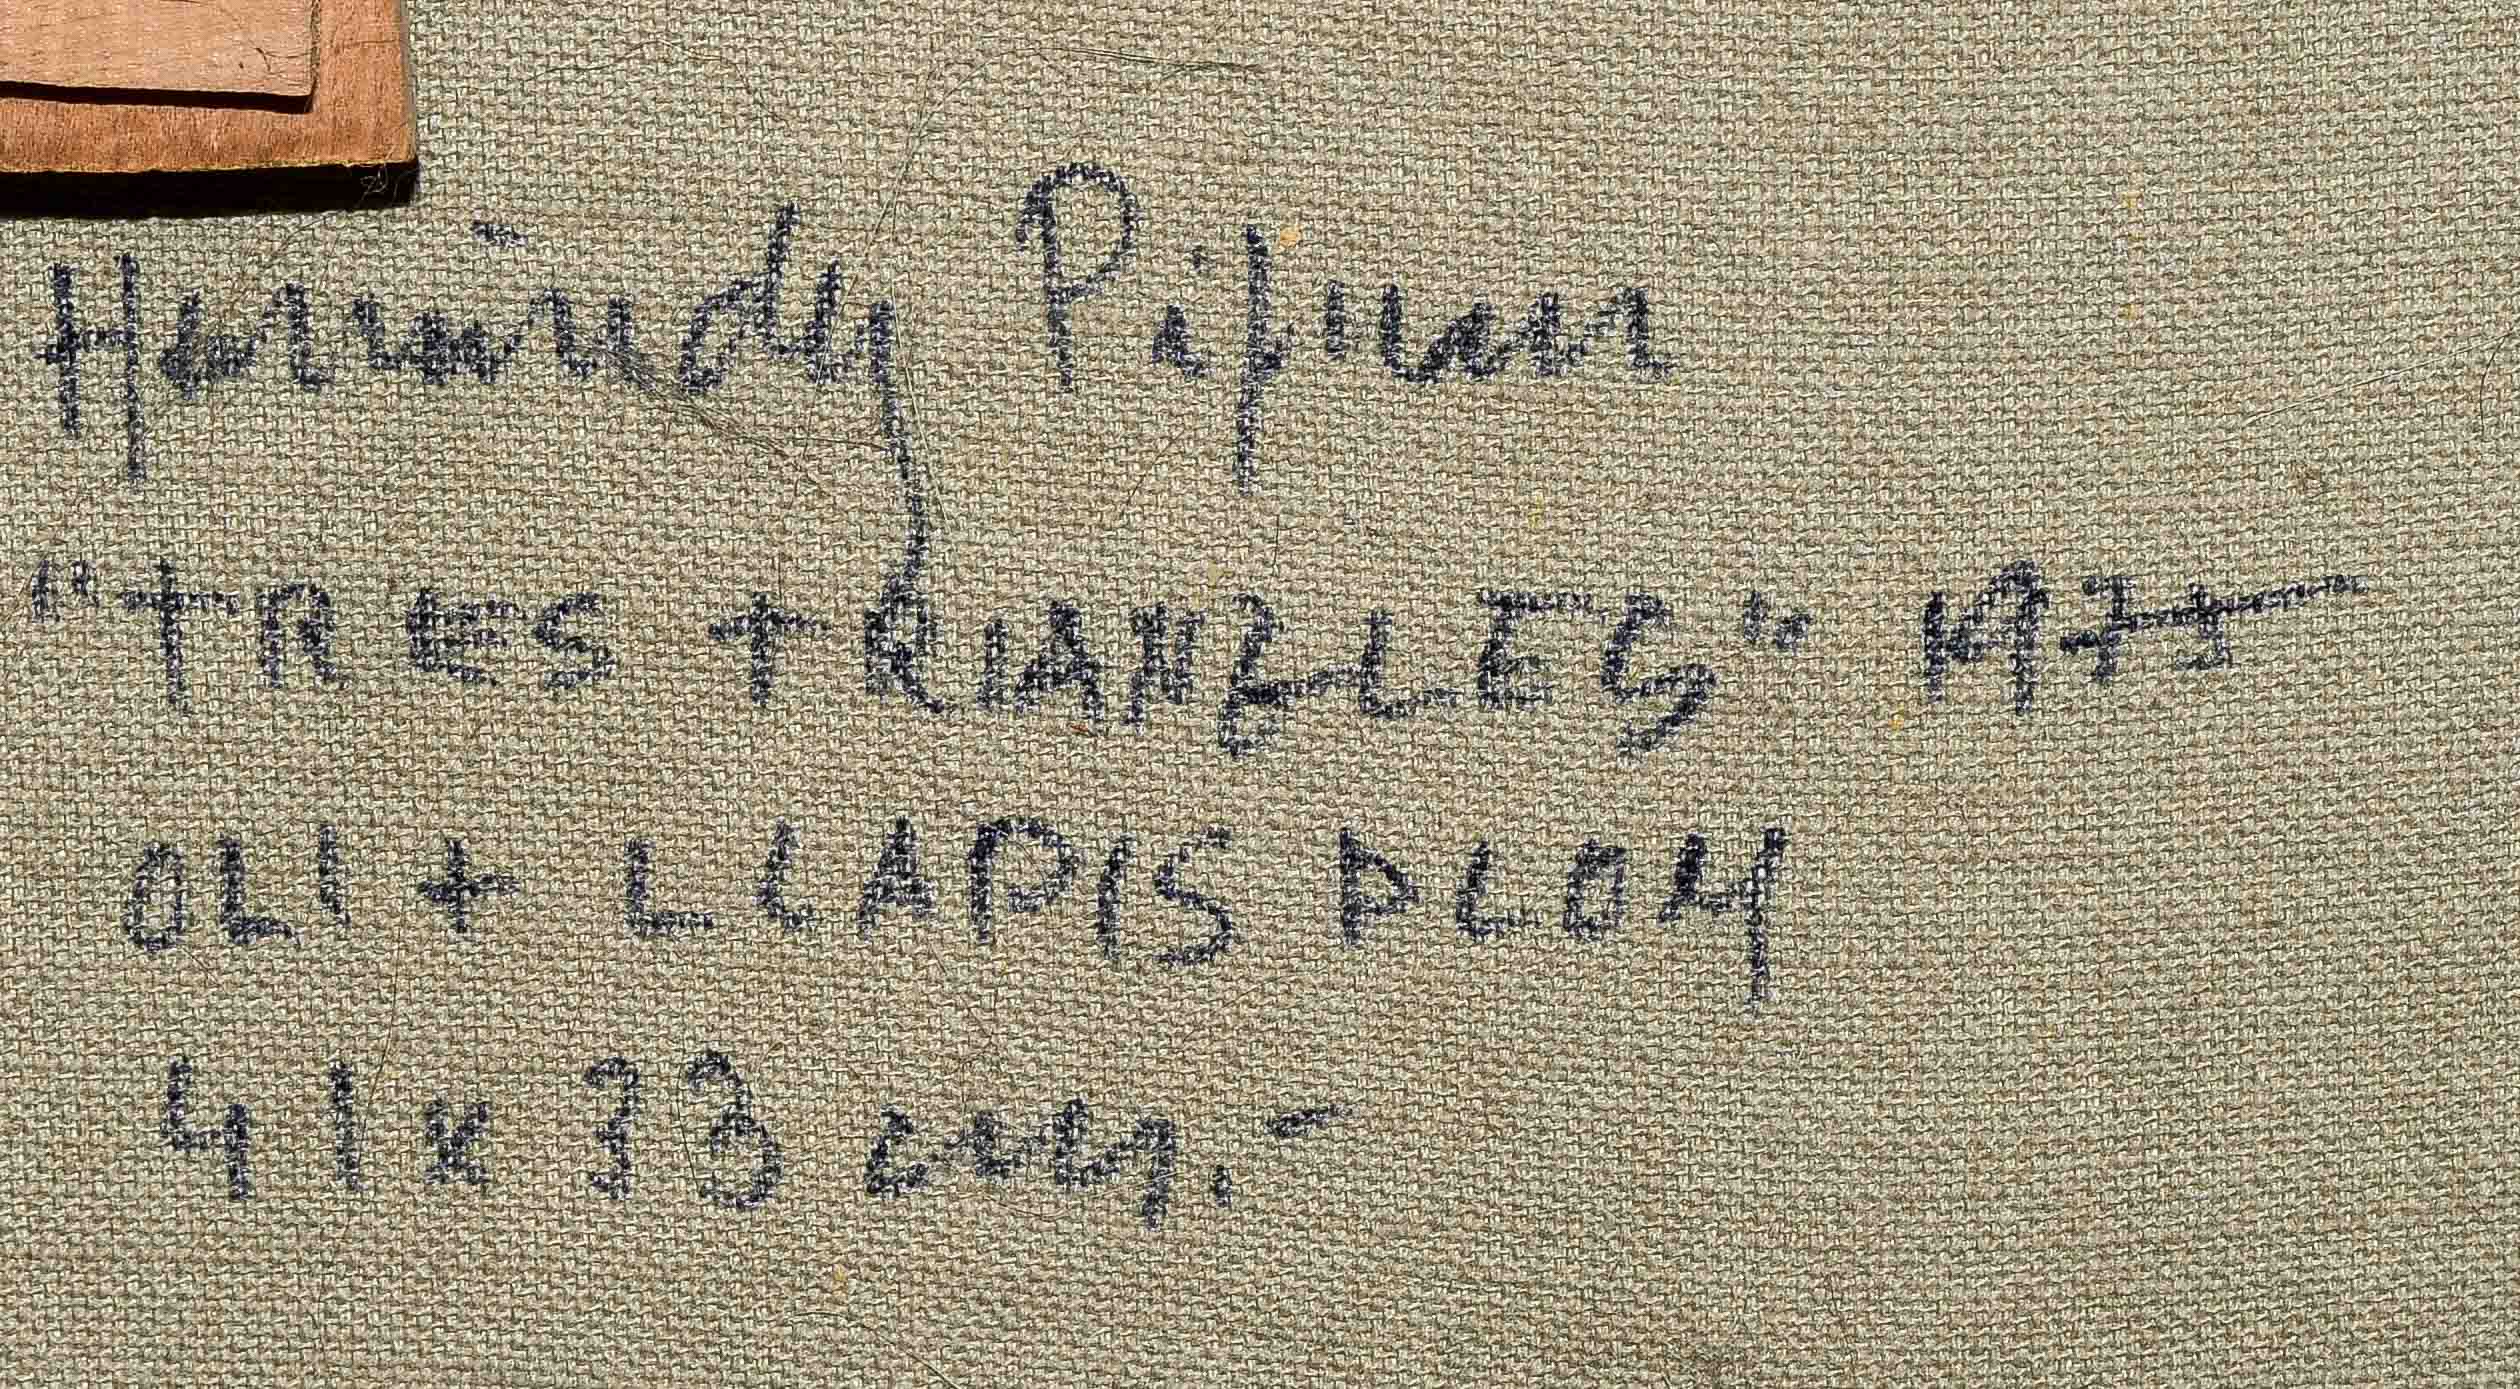 Hernández Pijuan
"TRES TRIANGLES" 1975
OLI + LLAPIS PLOM
41 x 33 cm. -